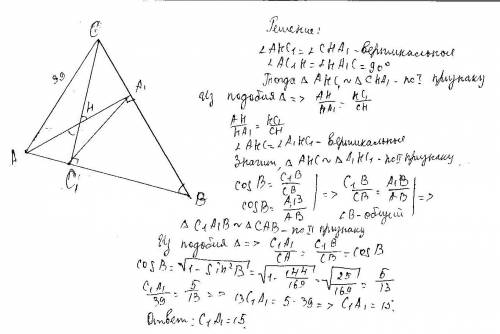 Решение:
∠AHC₁ = ∠CHA₁ - вертикальные
∠AC₁H = ∠HA₁C = 90°
Тогда △AHC₁ ~ △CHA₁ - по I признаку
Из подобия △ => AH/HA₁ = HC₁/CH
AH/HA₁ = HC₁/CH
∠AHC = ∠A₁HC₁ - вертикальные
Значит, △AHC ~ △A₁HC₁ - по II признаку
cosB = C₁B/CB
cosB = A₁B/AB | => C₁B/CB = A₁B/AB | =>
∠B - общий
△C₁A₁B ~ △CAB - по II признаку
Из подобия △ => C₁A₁/CA = C₁B/CB = cosB
cosB = √1 - sin²B = √1 - 144/169 = √25/169 = 5/13
C₁A₁/39 = 5/13 => 13C₁A₁ = 5·39 => C₁A₁ = 15.
Ответ: C₁A₁ = 15.
C
39
A₁
H
A
C₁
B